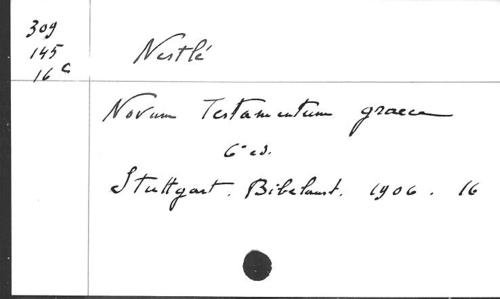 309
145
16 c
Nestlé
Novum Testamentum graece
6ª ed.
Stuttgart. Bibelanst. 1906. 16